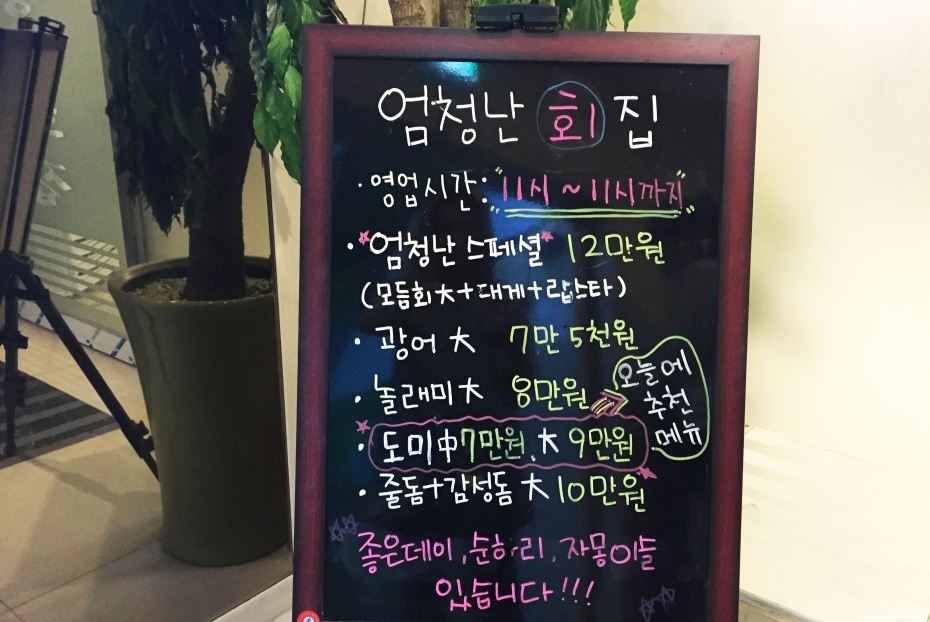 엄청난 회 집
· 영업시간: "11시 ~ 11시까지"
· *엄청난 스페셜* 12만원
(모듬회 大+대게+랍스타)
· 광어 大 7만 5천원
· 놀래미 大 8만원
오늘에
추천
메뉴
· 도미 中 7만원, 大 9만원
· 줄돔+감성돔 大 10만원
좋은데이, 순하리, 자몽이슬
있습니다!!!